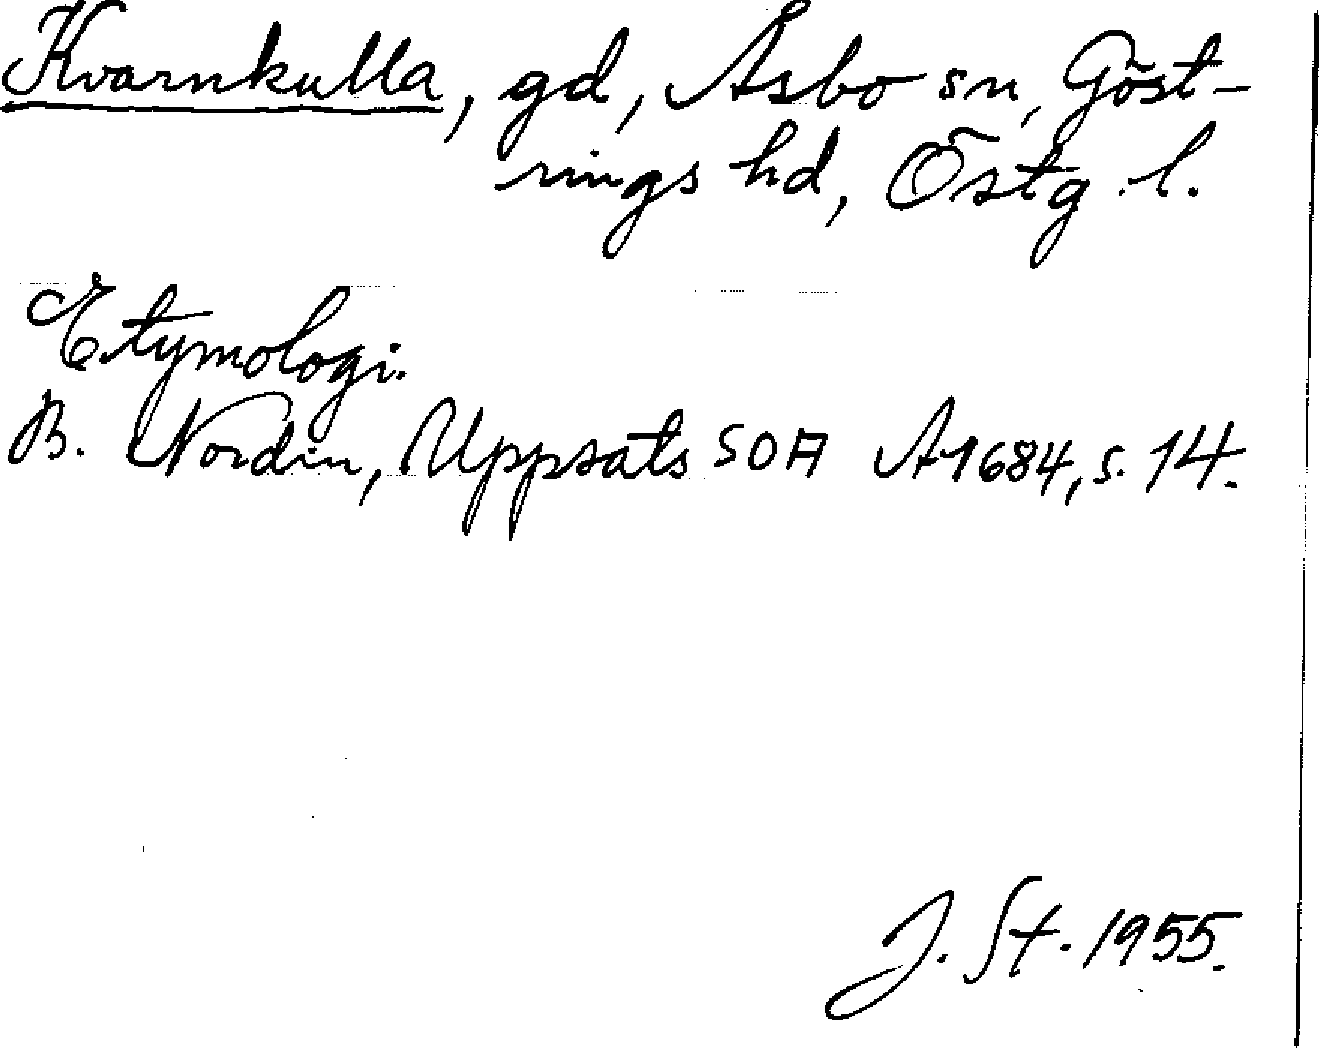 Kvarnkulla, gd, Åsbo sn, Göst-
rings hd, Östg. l.
Etymologi.
B. Nordin, Uppsats SOA A1684, s. 14.
J. St. 1955.